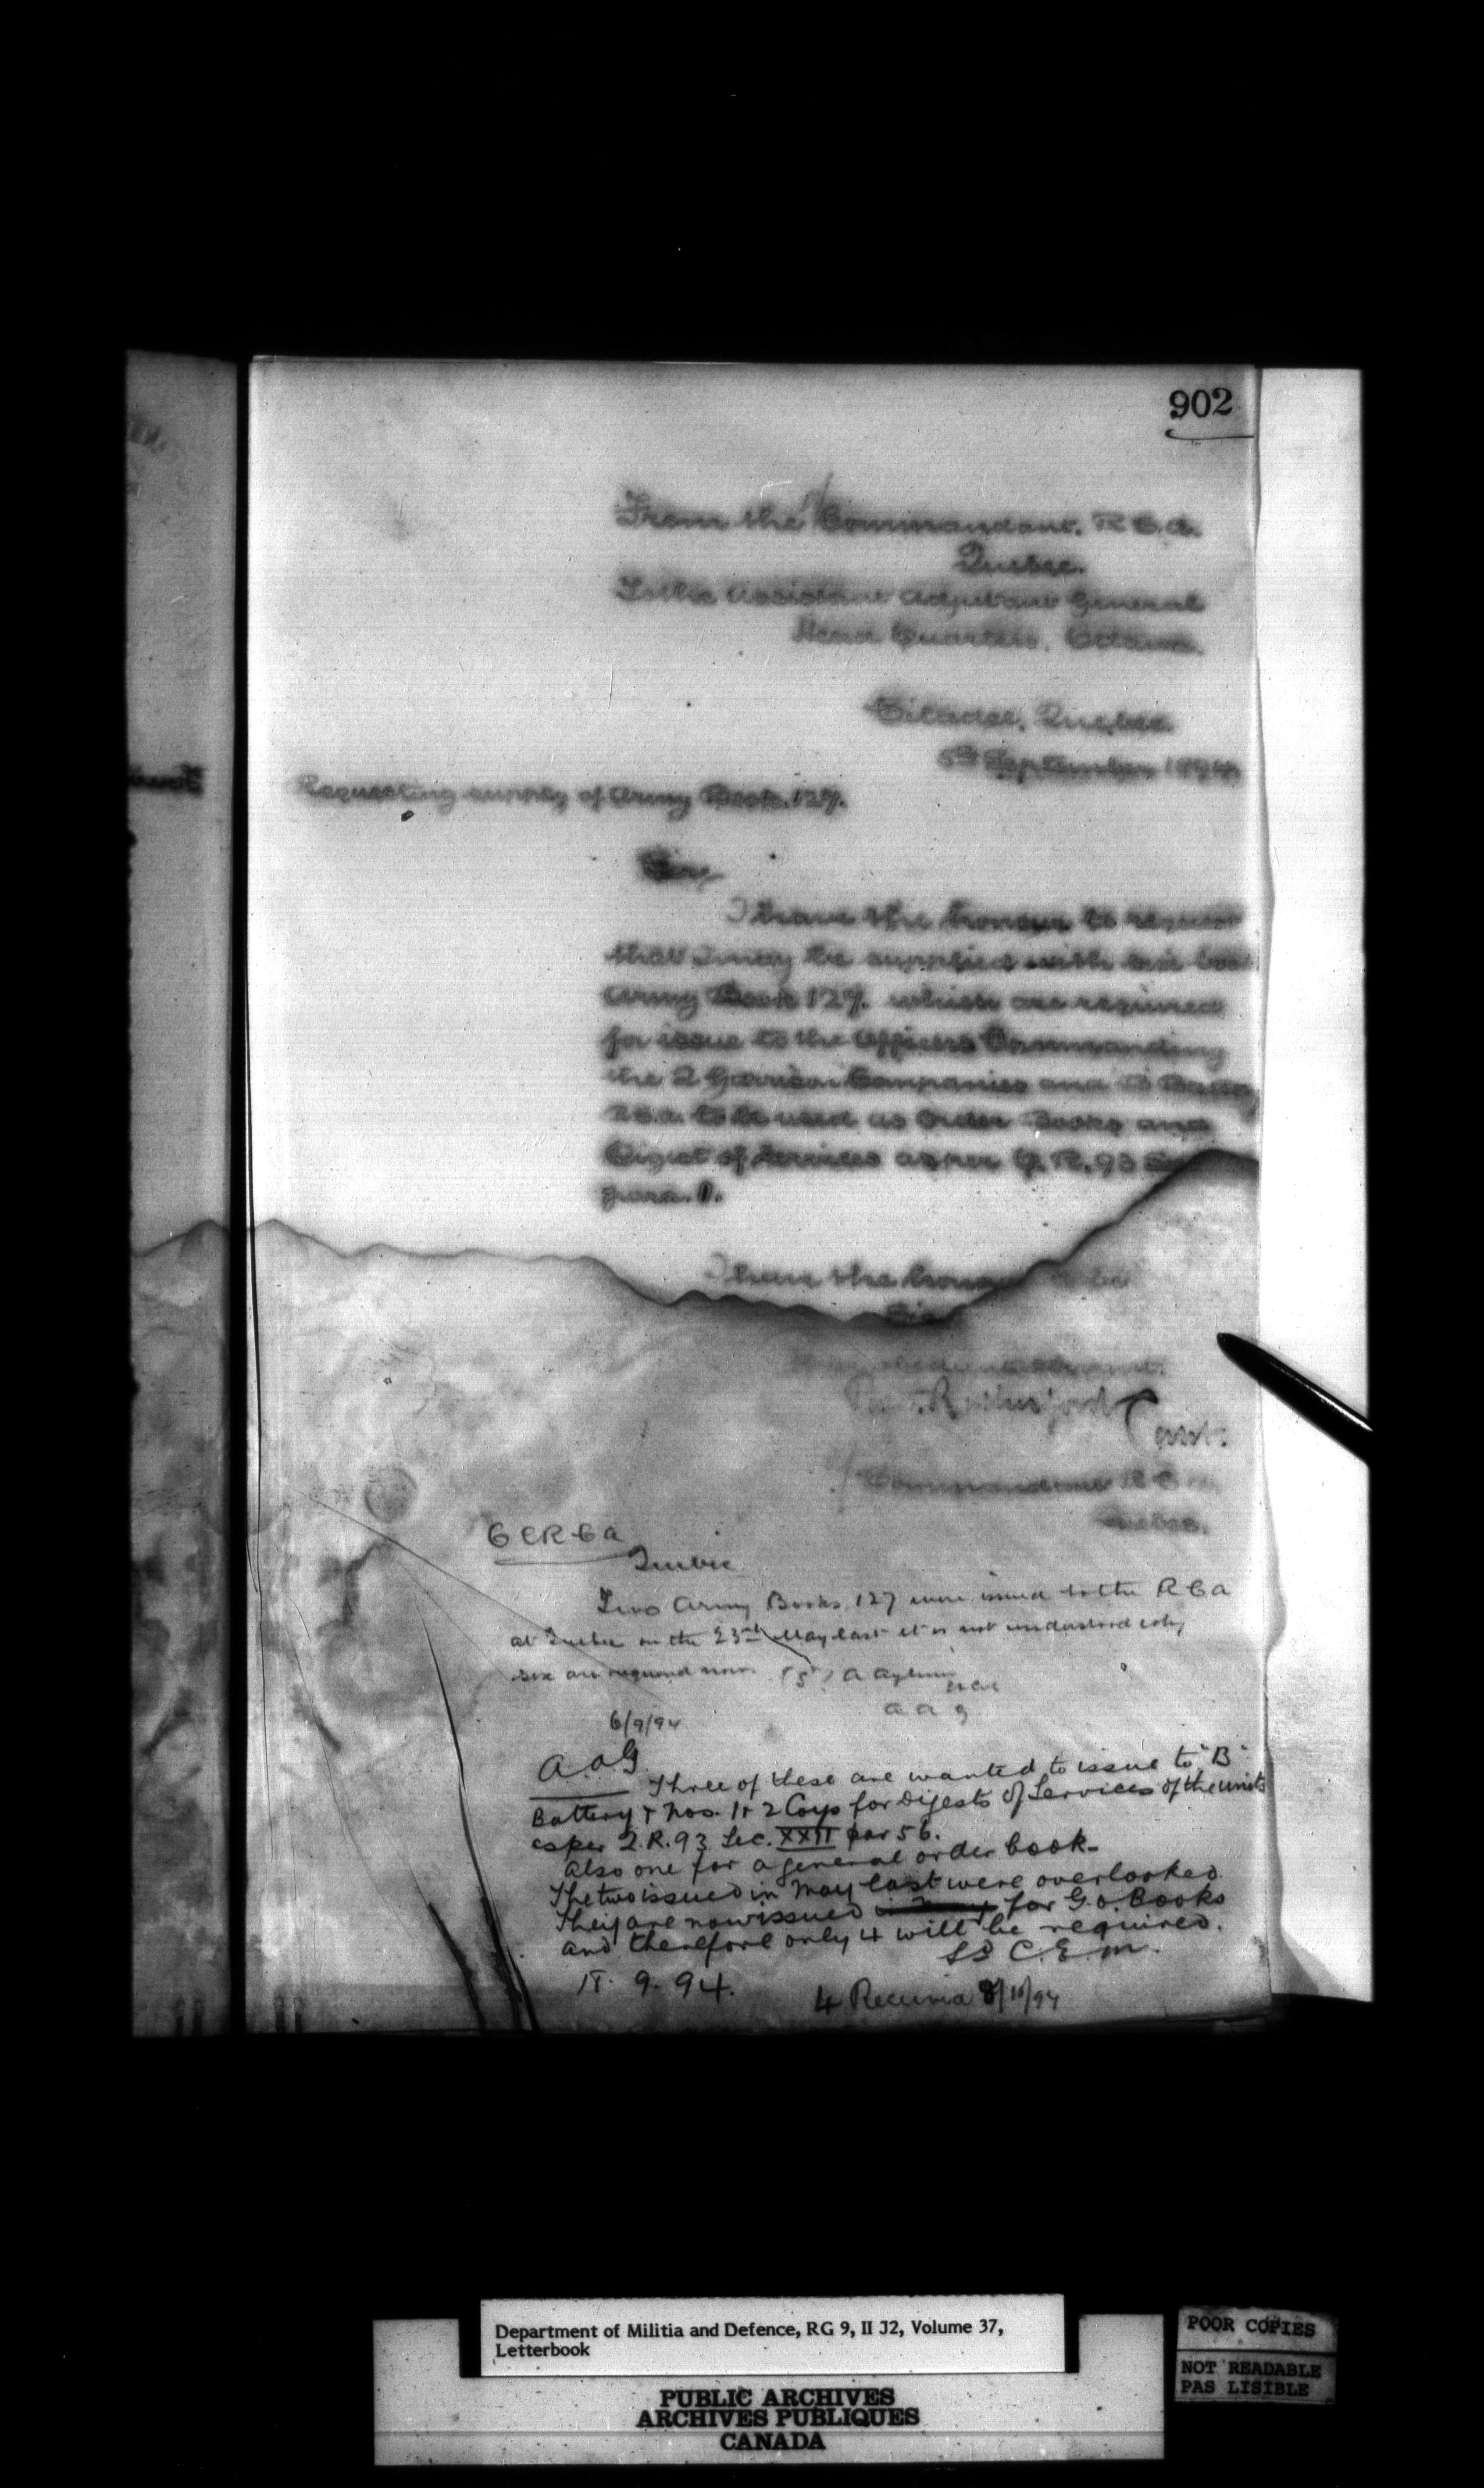 902
From the Commandant. R.C.A.
Quebec.
To the Assistant Adjutant General
Head Quarters. Ottawa.
Citadel, Quebec.
5th September 1894
Requesting supply of Army Book. 127.
Sir,
I have the honour to request
that I may be supplied with six
Army Book 127. which are required
for issue to the Officers Commanding
the 2 Garrison Companies and B Battery
R.C.A. to be used as Order Books and
Digest of Services as per Q.R. 93
para. 1.
I have the honour be
Sir
obedient Servant.
Rutherford Capt.
Commandant R C
Quebec.
C R C a
Quebec
Two Army Books. 127 were issued to the R C A
at Quebec on the 23rd May last it is not understood why
six are required now. (S) A Aylmer
a a g
6/9/94
A.a.G.
Three of these are wanted to issue to "B"
Battery & Nos. 1 & 2 Coys for Digests of Services of the units
as per Q.R. 93 Sec. XXII par 56.
Also one for a general order book-
The two issued in May last were overlooked.
They are now issued for G.O. Books
and therefore only 4 will be required.
C.E.M.
9. 94.
4 Received 8/10/94
Department of Militia and Defence, RG 9, II J2, Volume 37,
Letterbook
PUBLIC ARCHIVES
ARCHIVES PUBLIQUES
CANADA
POOR COPIES
NOT READABLE
PAS LISIBLE